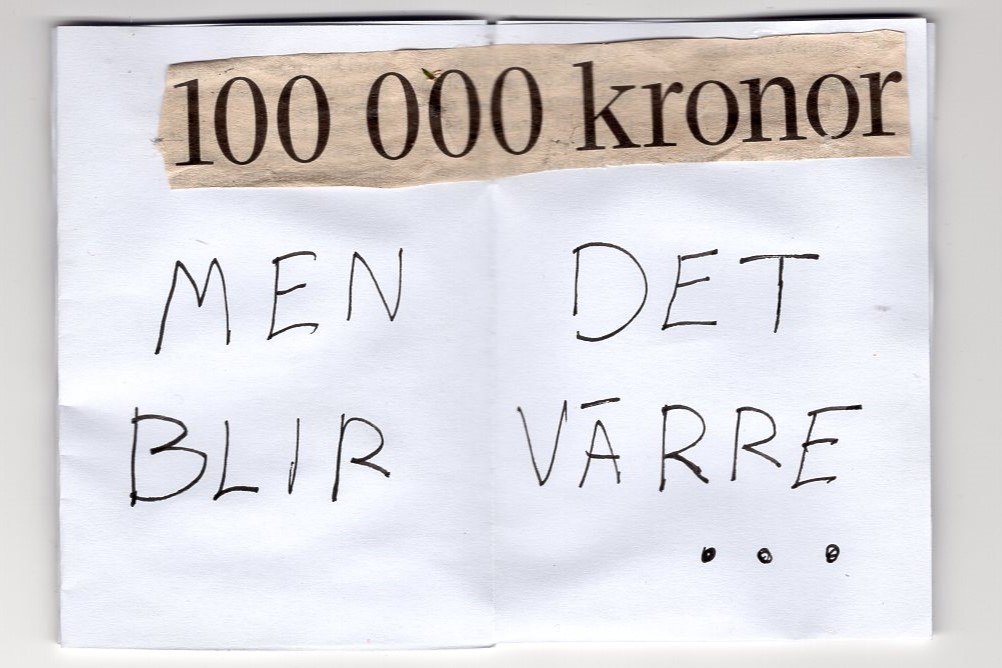 100 000 kronor
MEN DET
BLIR VĀRRE
...